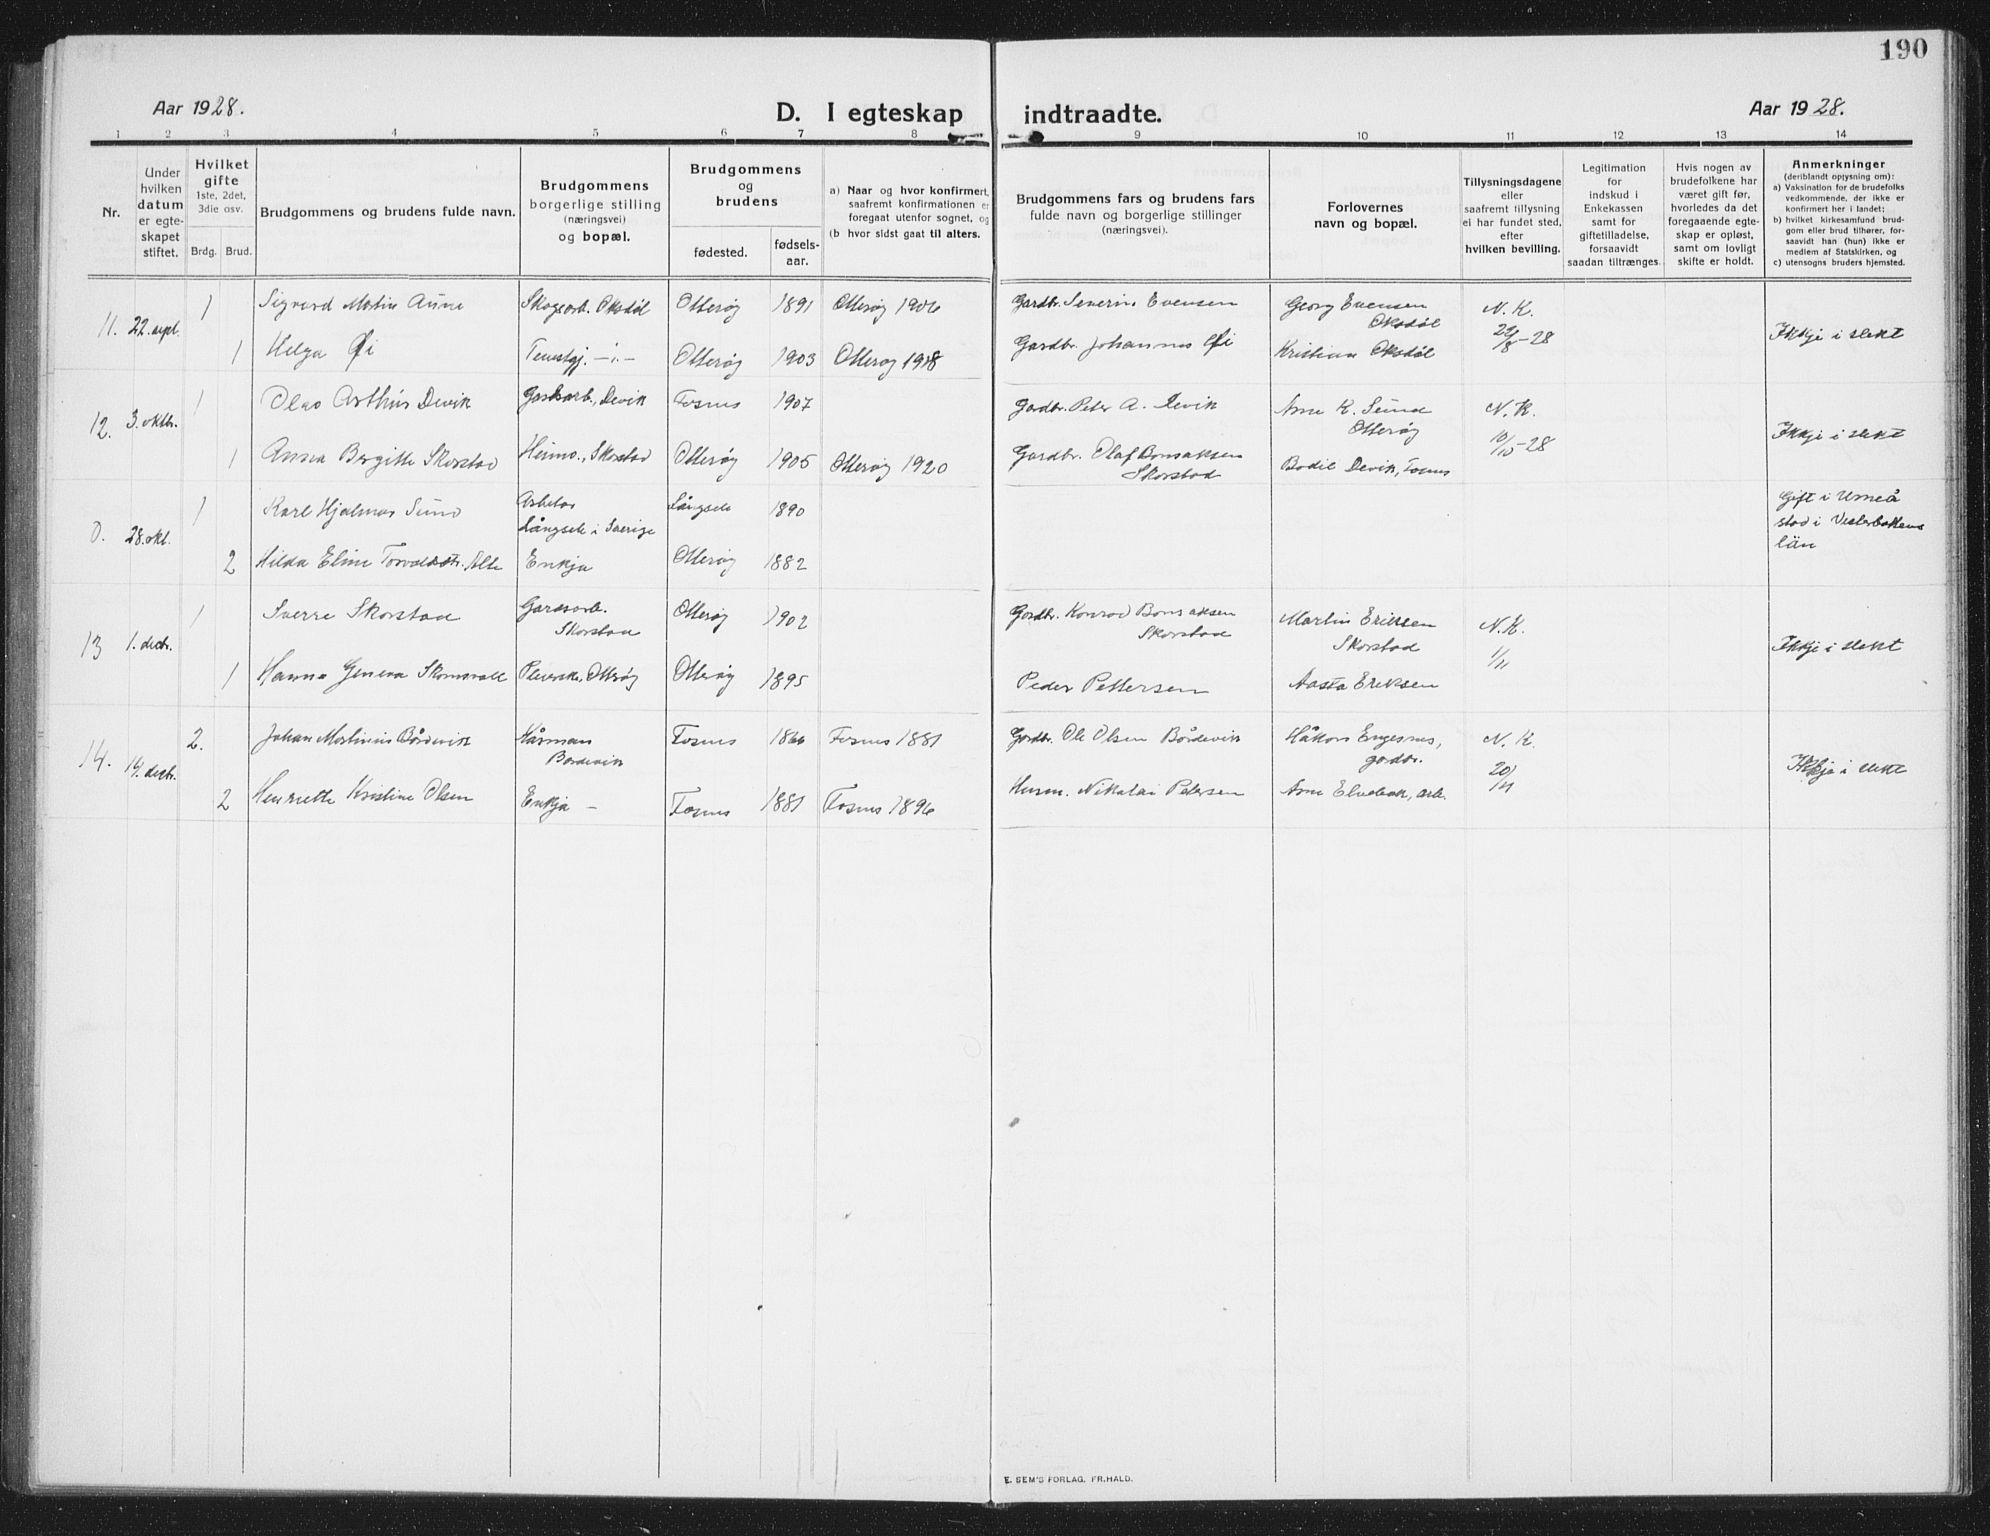 190
Aar 1928.
D. I egteskap indtraadte.
Aar 1928.
1 2 3 4 5 6 7 8 9 10 11 12 13 14
Nr.
Under
hvilken
datum
er egte-
skapet
stiftet.
Hvilket
gifte
1ste, 2det,
3die osv.
Brdg. Brud.
Brudgommens og brudens fulde navn.
Brudgommens
borgerlige stilling
(næringsvei)
og bopæl.
Brudgommens
og
brudens
fødested.
fødsels-
aar.
a) Naar og hvor konfirmert,
saafremt konfirmationen er
foregaat utenfor sognet, og
(b hvor sidst gaat til alters.
Brudgommens fars og brudens fars
fulde navn og borgerlige stillinger
(næringsvei).
Forlovernes
navn og bopæl.
Tillysningsdagene
eller
saafremt tillysning
ei har fundet sted,
efter
hvilken bevilling.
Legitimation
for
indskud i
Enkekassen
samt for
giftetilladelse,
forsaavidt
saadan tiltrænges.
Hvis nogen av
brudefolkene har
været gift før,
hvorledes da det
foregaaende egte-
skap er opløst,
samt om lovligt
skifte er holdt.
Anmerkninger
(deriblandt opjysning om):
a) Vaksination for de brudefolks
vedkommende, der ikke er
konfirmert her i landet;
b) hvilket kirkesamfund brud-
gom eller brud tilhører, for-
saavidt han (hun) ikke er
medlem af Statskirken, og
c) utensogns bruders hjemsted.
11. 22. sept.
1 Sigvard Martin Aune Skogsarb. Oksdøl Otterøy 1891 Otterøy 1906 Gardbr. Severin Evensen Georg Evensen
Oksdøl
N. K.
22/8-28
1 Helga Øi Tenestgj. -"- Otterøy 1903 Otterøy 1918 Gardbr. Johannes Øi Kristian Oksdøl
Ikkje i slekt
12. 3. oktbr.
1 Olav Arthur Devik Gardsarb., Devik Fosnes 1907 Gardbr. Peter A. Devik Arne K. Seind
Otterøy
N. K.
10/10-28
1 Anna Bergitte Skorstad Heime., Skorstad Otterøy 1905 Otterøy 1920 Gardbr. Olaf Bonsaksen
Skorstad
Bodil Devik, Fosnes
Ikkje i slekt
0. 28. okt.
1 Karl Hjalmar Sund Arbetar
Långsele i Sverige
Långsele 1890
2 Hilda Eline Torvaldsdtr. Alte Enkja Otterøy 1882
Gift i Umeå
stad i Vesterbottens
län
13 1. decbr.
1 Sverre Skorstad Gardsarb.
Skorstad
Otterøy 1902 Gardbr. Konrad Bonsaksen
Skorstad
Martin Eriksen
Skorstad
N. K.
1/11
1 Hanna Skomsvoll Pleierske, Otterøy Otterøy 1895 Peder Pettersen Aasta Eriksen
Ikkje i slekt
14. 14. decbr.
2. Johan Martinus Bårdevik Kårmann
Bårdevik
Fosnes 1866 Fosnes 1881 Gardbr. Ole Olsen Bårdevik Håkon Engesnes,
gardbr.
N. K.
20/11
2 Henriette Kristine Olsen Enkja - Fosnes 1881 Fosnes 1896 Husm. Nikolai Petersen Arne Elvebak, arb.
Ikkje i slekt
E. SEM'S FORLAG, FR.HALD.